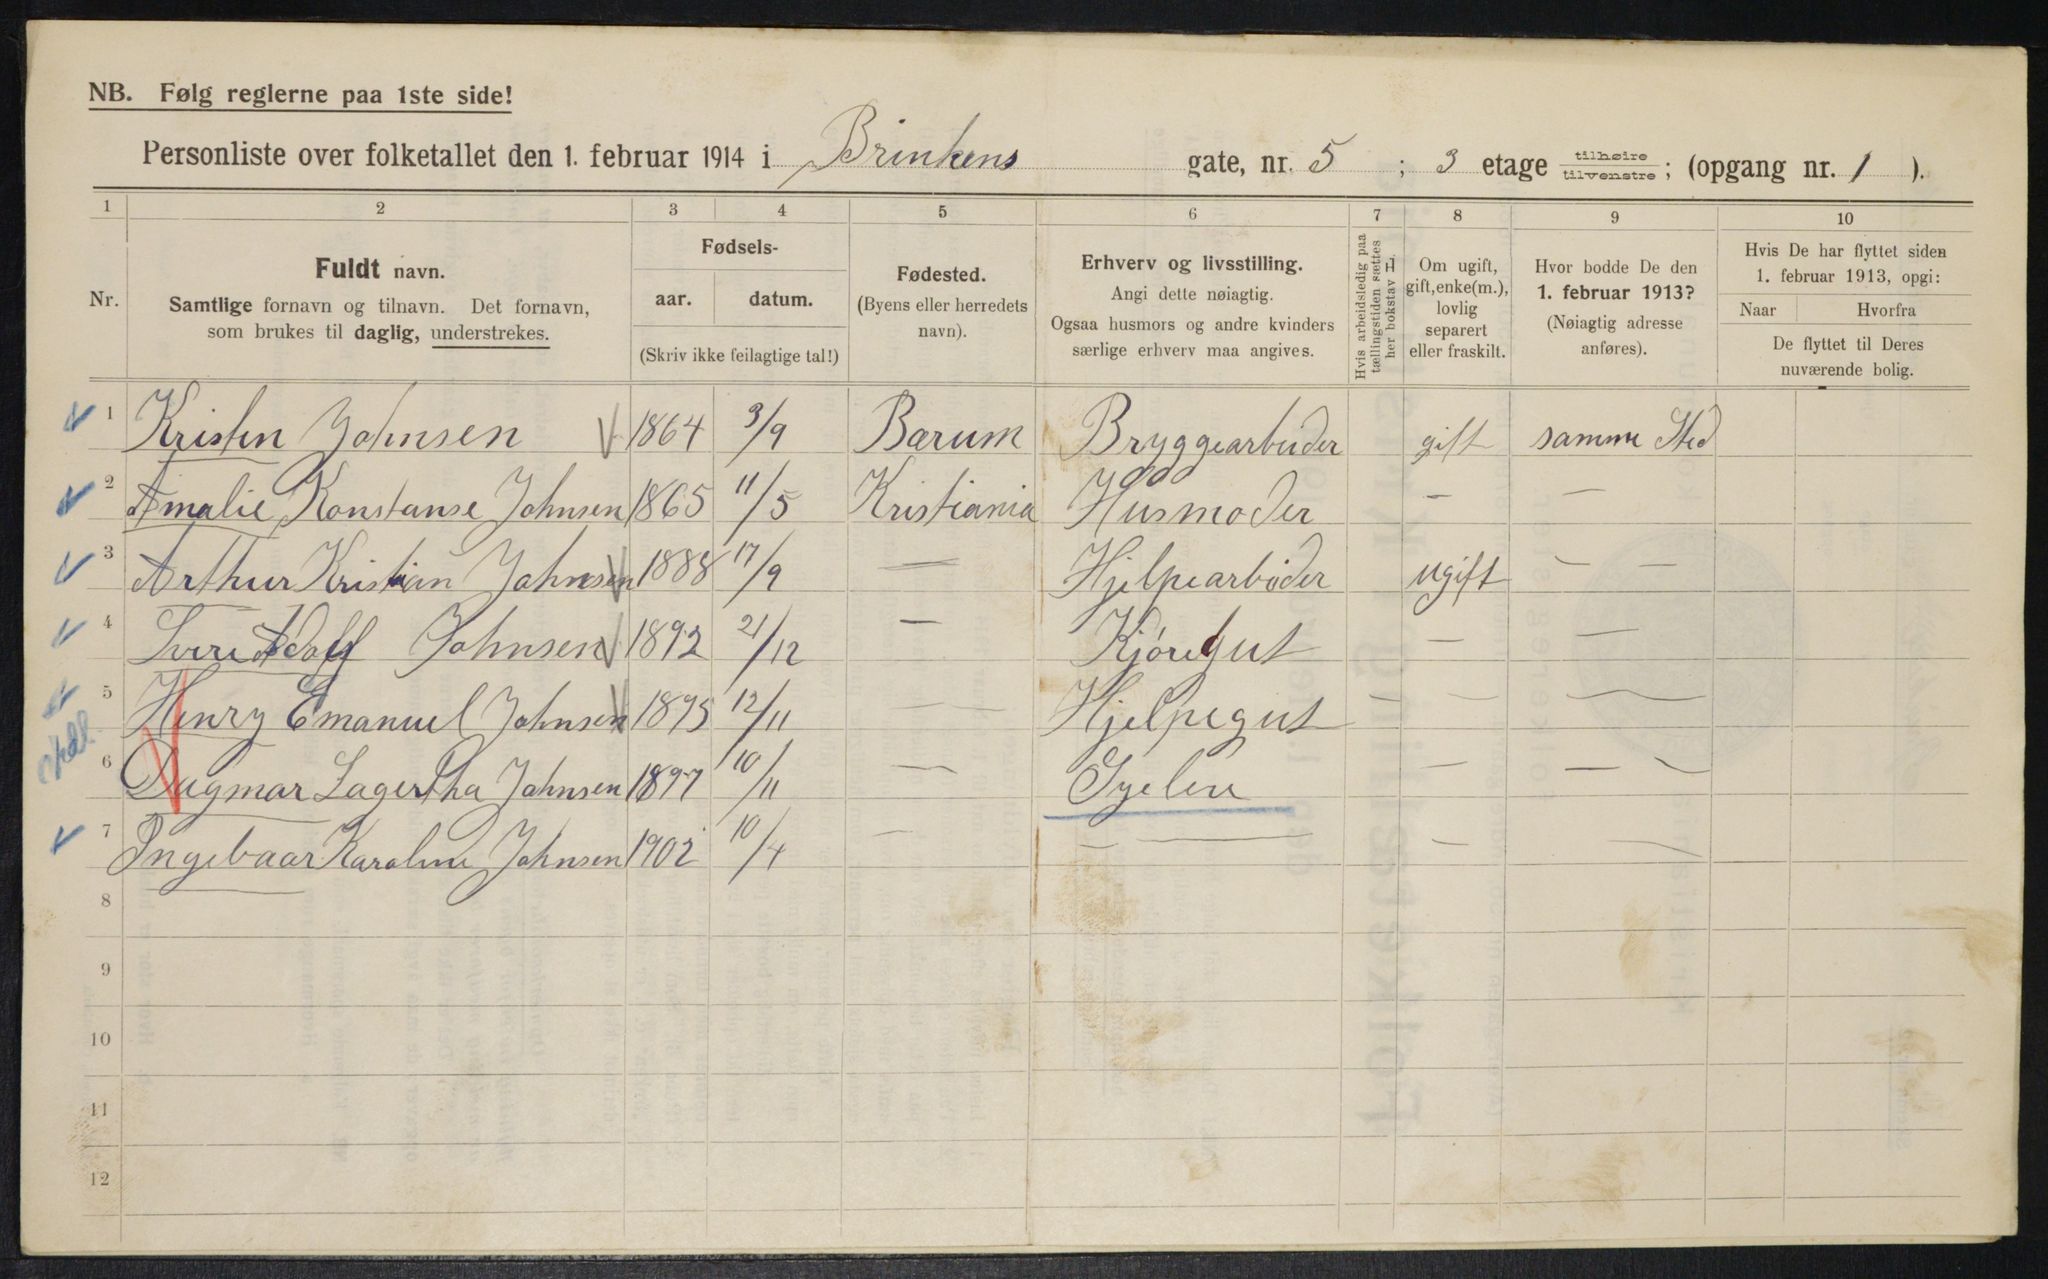 NB. Følg reglerne paa 1ste side!
Personliste over folketallet den 1. februar 1914 i Brinkens gate, nr. 5 ; 3 etage tilhøire tilvenstre ; (opgang nr. 1 ).
1 2 3 4 5 6 7 8 9 10
Nr.
Fuldt navn.
Samtlige fornavn og tilnavn. Det fornavn,
som brukes til daglig, understrekes.
Fødsels-
aar. datum.
(Skriv ikke feilagtige tal!)
Fødested.
(Byens eller herredets
navn).
Erhverv og livsstilling.
Angi dette nøiagtig.
Ogsaa husmors og andre kvinders
særlige erhverv maa angives.
Hvis arbeidsledig paa
tællingstiden sættes
her bokstav L.
Om ugift,
gift, enke(m.),
lovlig
separert
eller fraskilt.
Hvor bodde De den
1. februar 1913?
(Nøiagtig adresse
anføres).
Hvis De har flyttet siden
1. februar 1913, opgi:
Naar Hvorfra
De flyttet til Deres
nuværende bolig.
1 Kristen Johnsen 1864 3/9 Bærum Bryggearbeider gift samme Sted
2 Amalie Konstanse Johnsen 1865 11/5 Kristiania Husmoder — —
3 Arthur Kristian Johnsen 1888 17/9 — Hjelpearbeider ugift — —
4 Sverre Adolf Johnsen 1892 21/12 — Kjøregut — —
5 Henry Emanuel Johnsen 1895 12/11 — — Hjelpegut — — —
6 Dagmar Lagertha Johnsen 1897 10/11 — — — —
7 Ingebaar Karoline Johnsen 1902 10/4 — — — — —
8
9
10
11
12